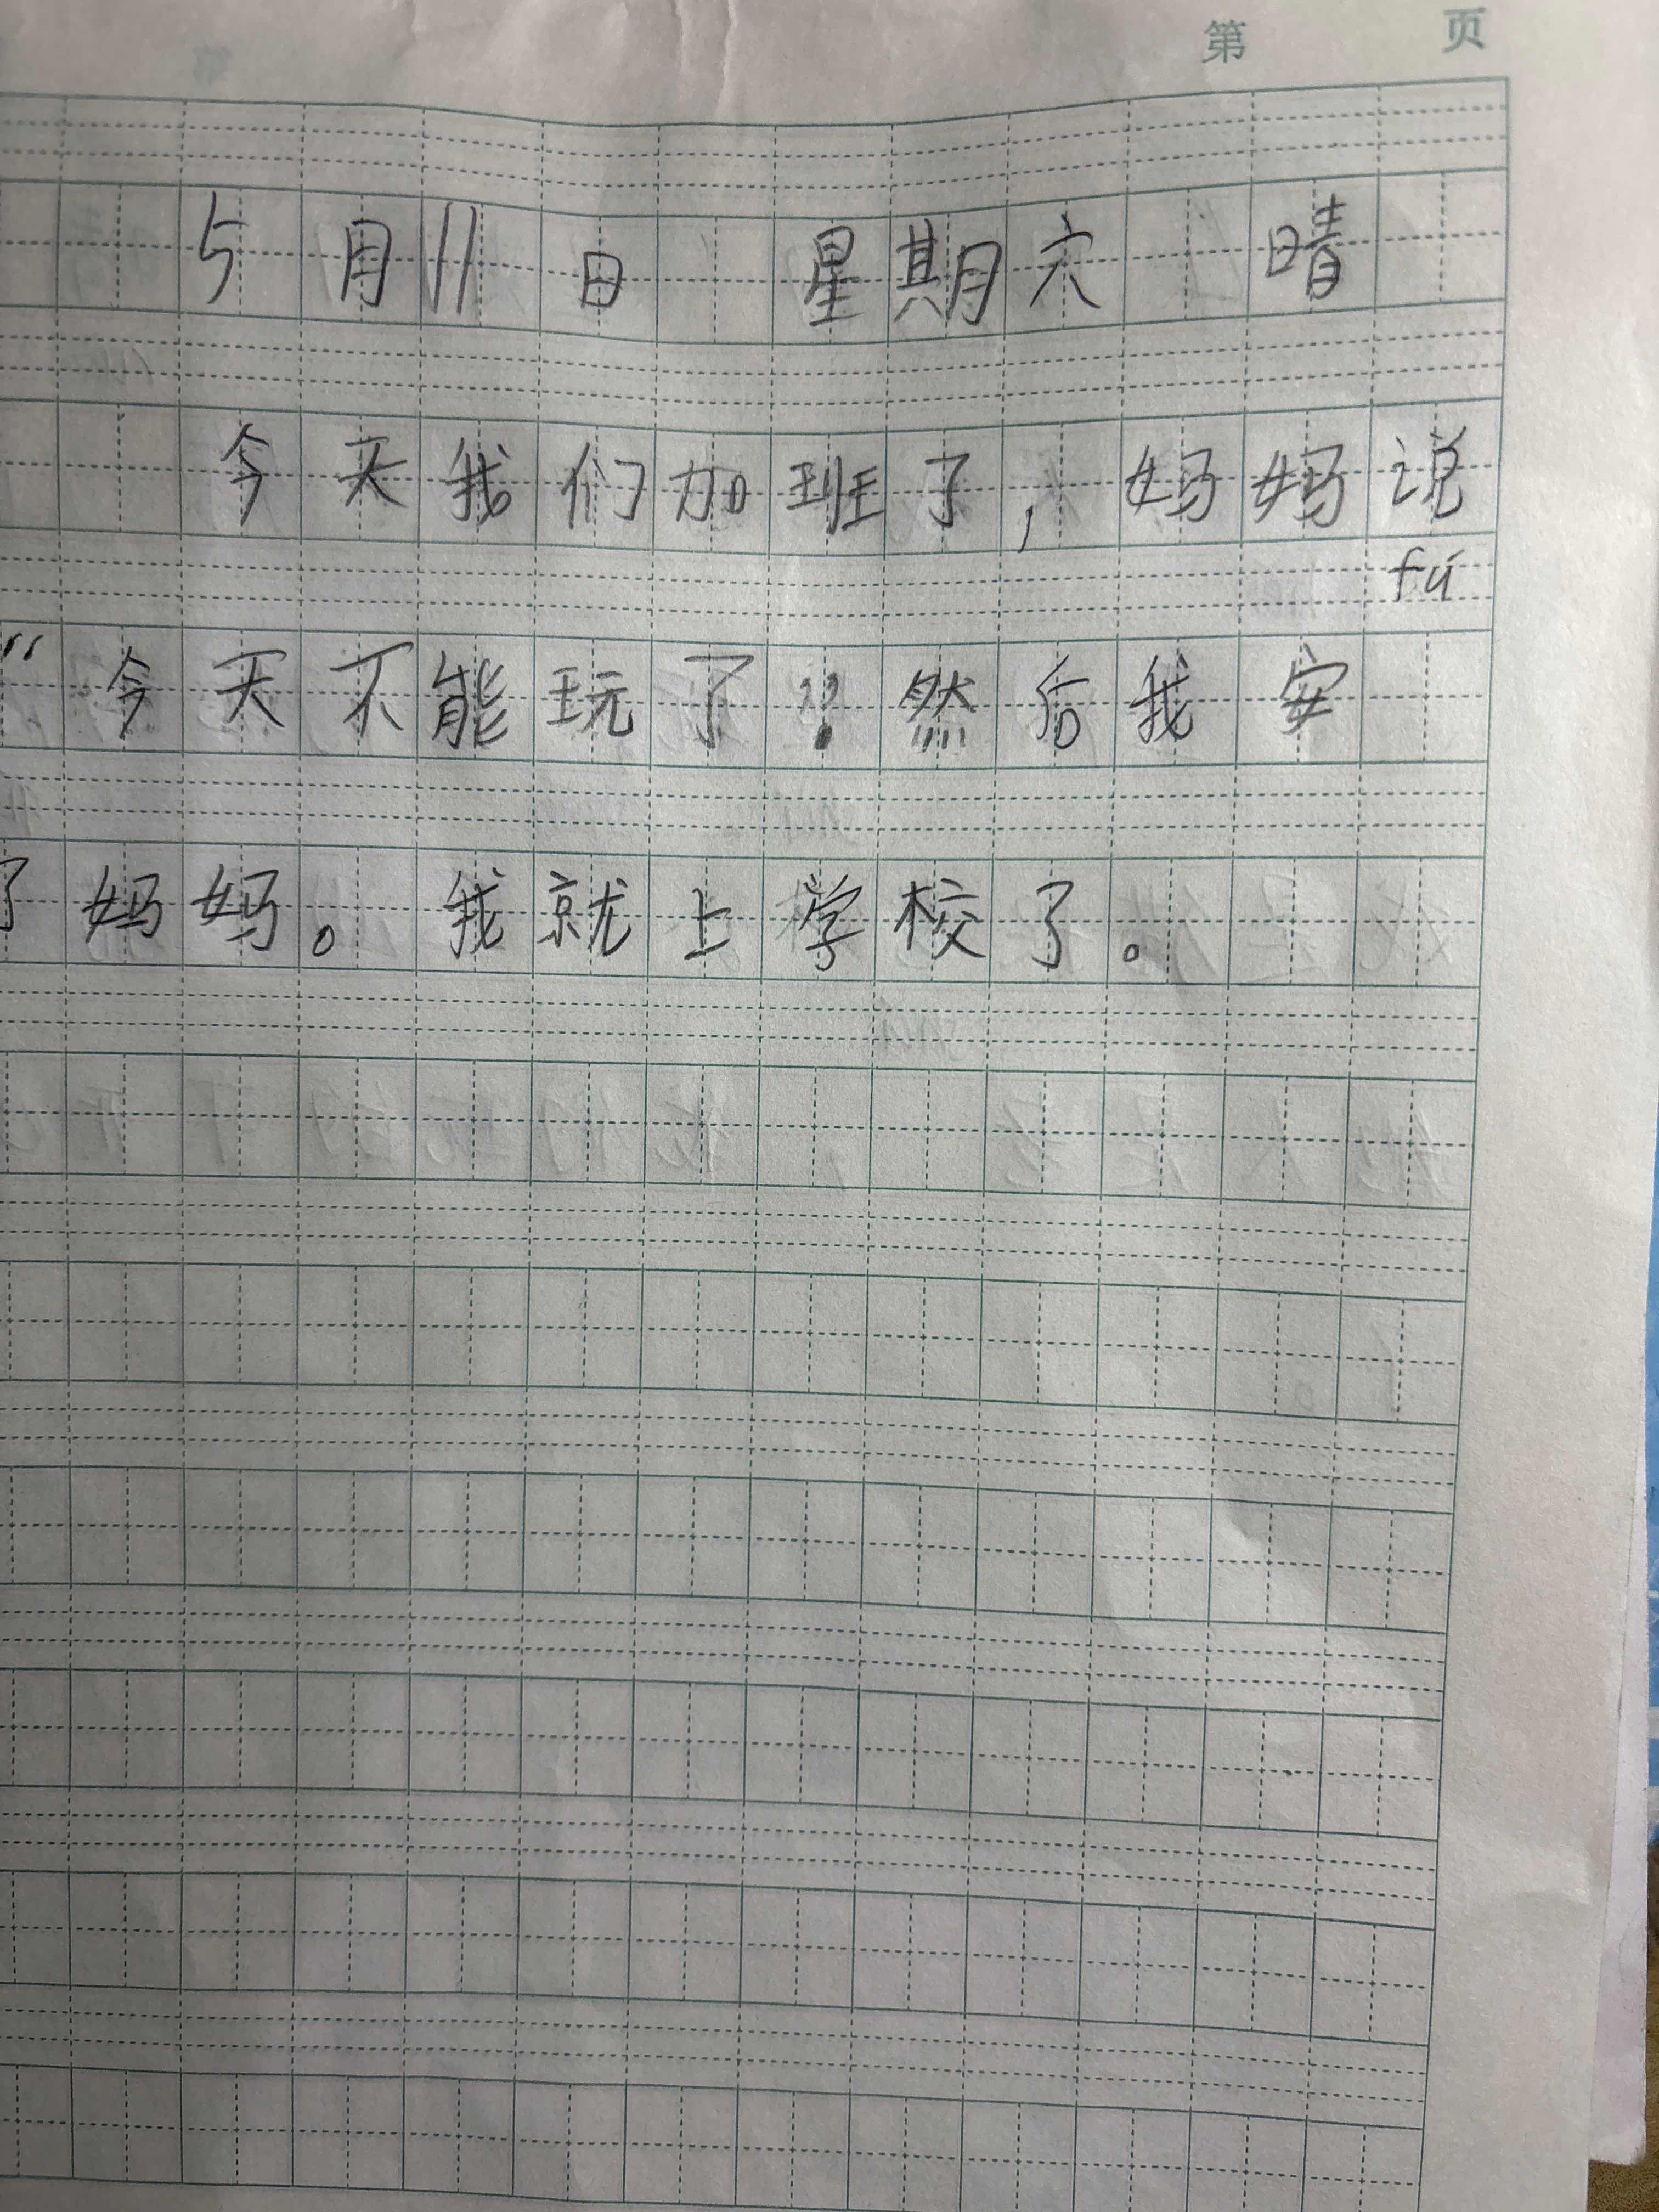 第 页
5月11日 星期六 晴
今天我们加班了，妈妈说
fú
“今天不能玩了！”然后我安
了妈妈。我就上学校了。